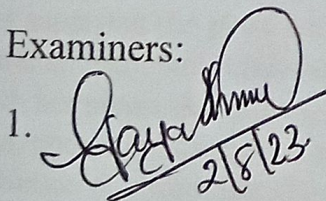 Examiners:
1.
2/8/23